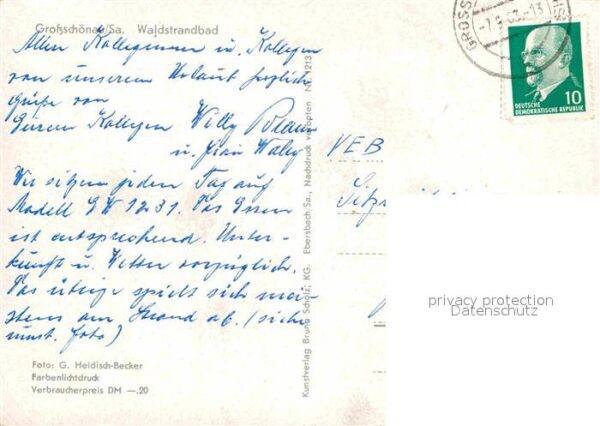 Großschönau/Sa. Waldstrandbad
Allen Kolleginnen u. Kollegen
von unserem Urlaub herzliche
Grüße von
Eurem Kollegen Willy
u. Frau
Wir sitzen jeden Tag auf
Modell GW 1231. Das Essen
ist entsprechend. Unter-
kunft u. Wetter vorzüglich.
Das übrige spielt sich mei-
stens am Strand ab. (siehe
umst. Foto)
Foto: G. Heidisch-Becker
Farbenlichtdruck
Verbraucherpreis DM —.20
Kunstverlag Bruno Scholz, KG. Ebersbach/Sa., Nachdruck verboten Nr. 1213
GROSS
DEUTSCHE
DEMOKRATISCHE REPUBLIK
10
VEB
privacy protection
Datenschutz